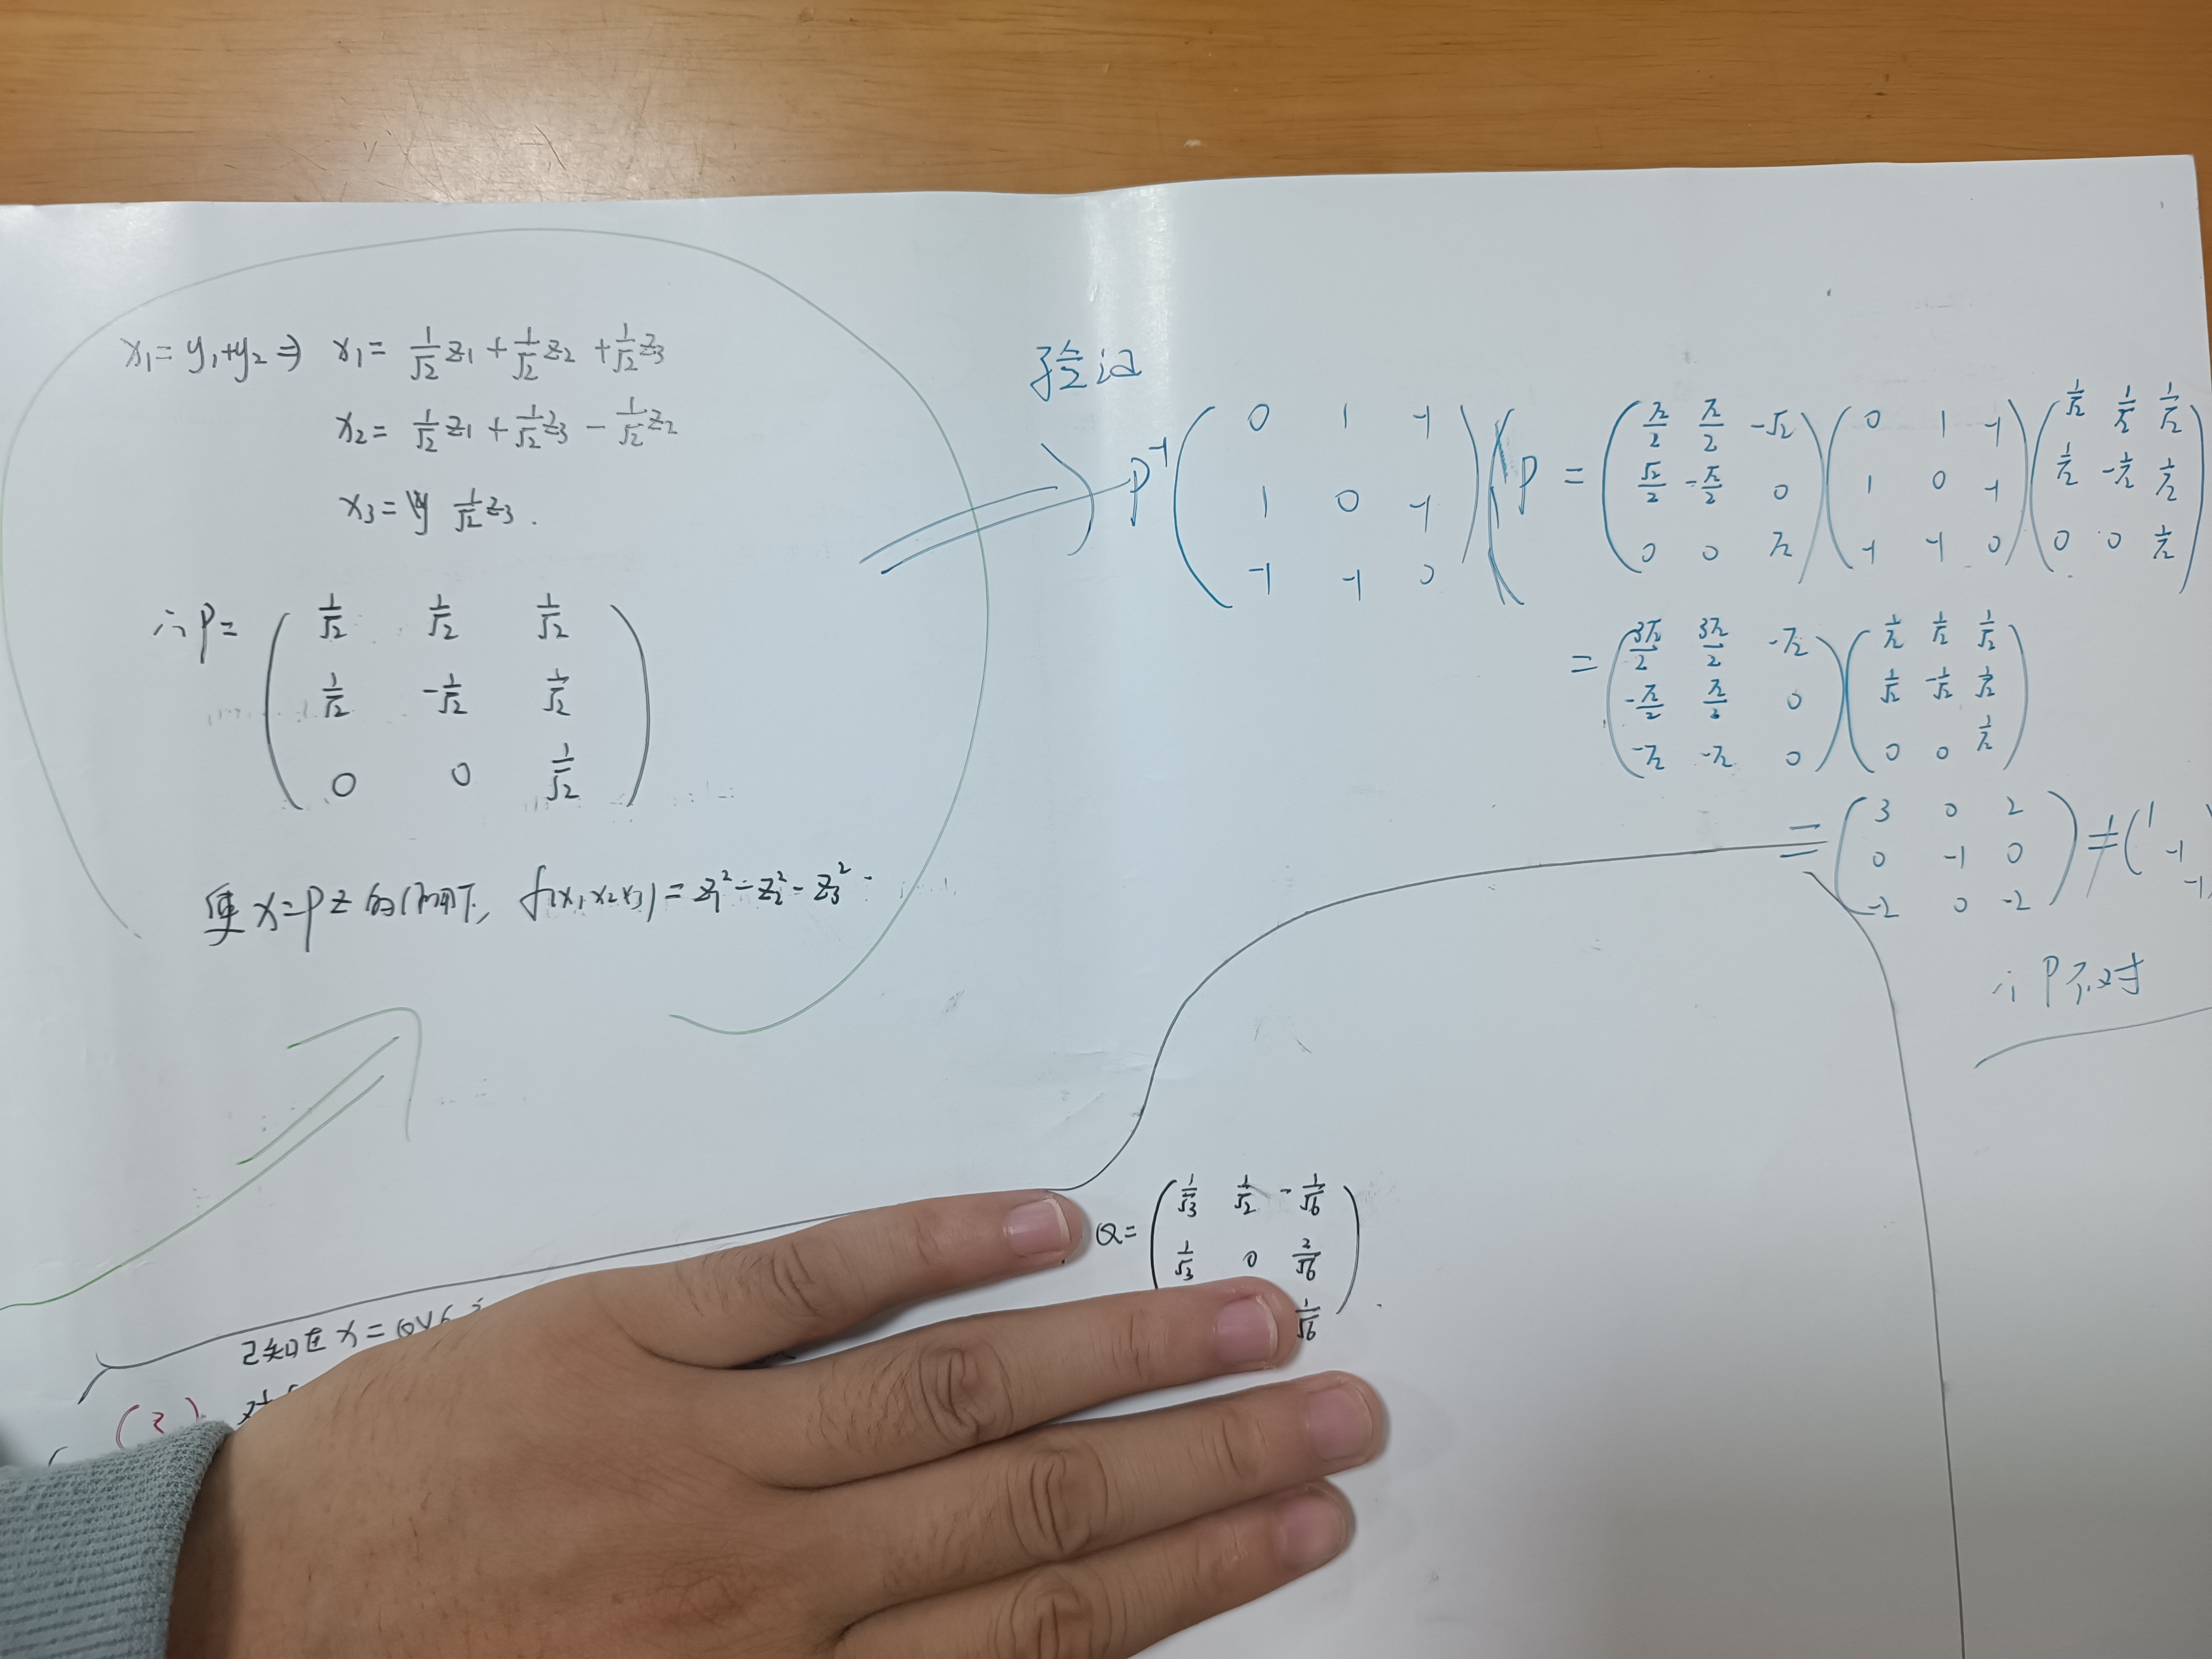 x₁ = y₁+y₂ ⇒ x₁ = 1/√2 z₁ + 1/√2 z₂ + 1/√2 z₃
x₂ = 1/√2 z₁ + 1/√2 z₃ - 1/√2 z₂
x₃ = 1/√2 z₃ .
∴ P = ( 1/√2 1/√2 1/√2
1/√2 -1/√2 1/√2
0 0 1/√2 )
使 x = Pz 的 f(x₁x₂x₃) = z₁² - z₂² - z₃² .
验证
P⁻¹ ( 0 1 -1
1 0 -1
-1 -1 0 ) P = ( √2/2 √2/2 -√2
√2/2 -√2/2 0
0 0 √2 ) ( 0 1 -1
1 0 -1
-1 -1 0 ) ( 1/√2 1/√2 1/√2
1/√2 -1/√2 1/√2
0 0 1/√2 )
= ( 3√2/2 3√2/2 -√2
-√2/2 √2/2 0
-√2 -√2 0 ) ( 1/√2 1/√2 1/√2
1/√2 -1/√2 1/√2
0 0 1/√2 )
= ( 3 0 2
0 -1 0
-2 0 -2 ) ≠ ( 1
-1
-1
∴ P不对
Q = ( 1/√3 1/√2 -1/√6
1/√3 0 2/√6
1/√6 ) .
已知在 x = Qy
(2)